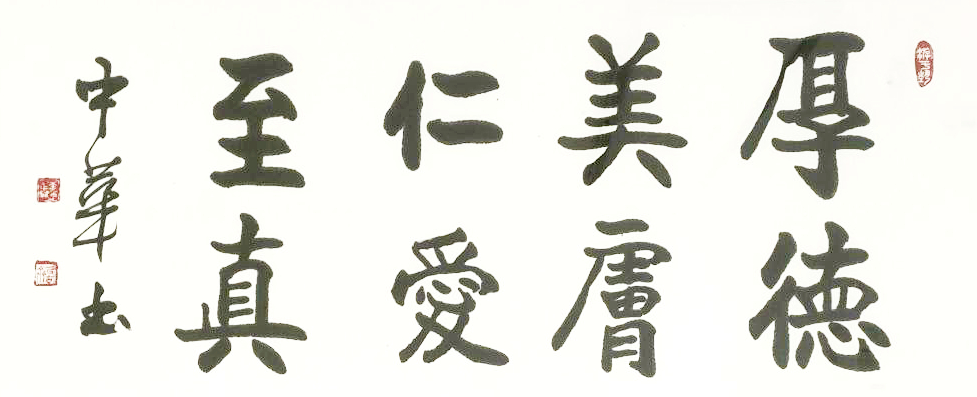 厚德
美膚
仁愛
至真
中華书